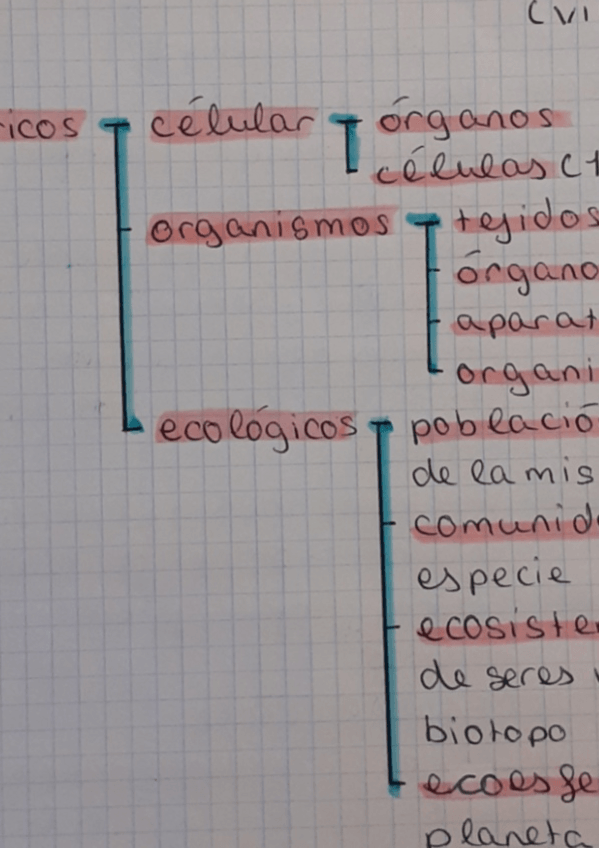 (vi
icos célular órganos
células (t
organismos tejidos
órgano
aparat
organi
ecológicos població
de la mis
comunid
especie
ecosiste
de seres
biotopo
ecoesfe
planeta